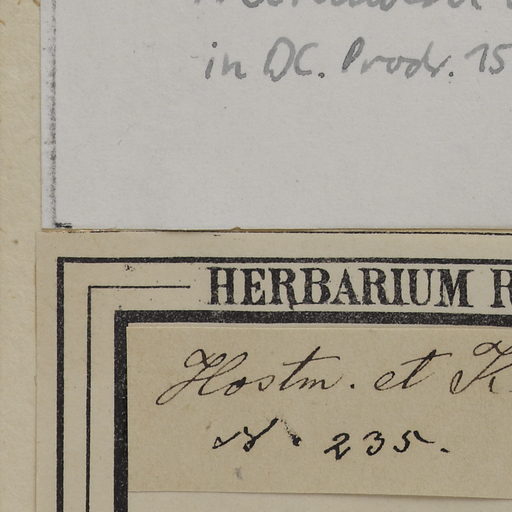 in DC. Prodr. 15
HERBARIUM R
Hostm. et K
N. 235.